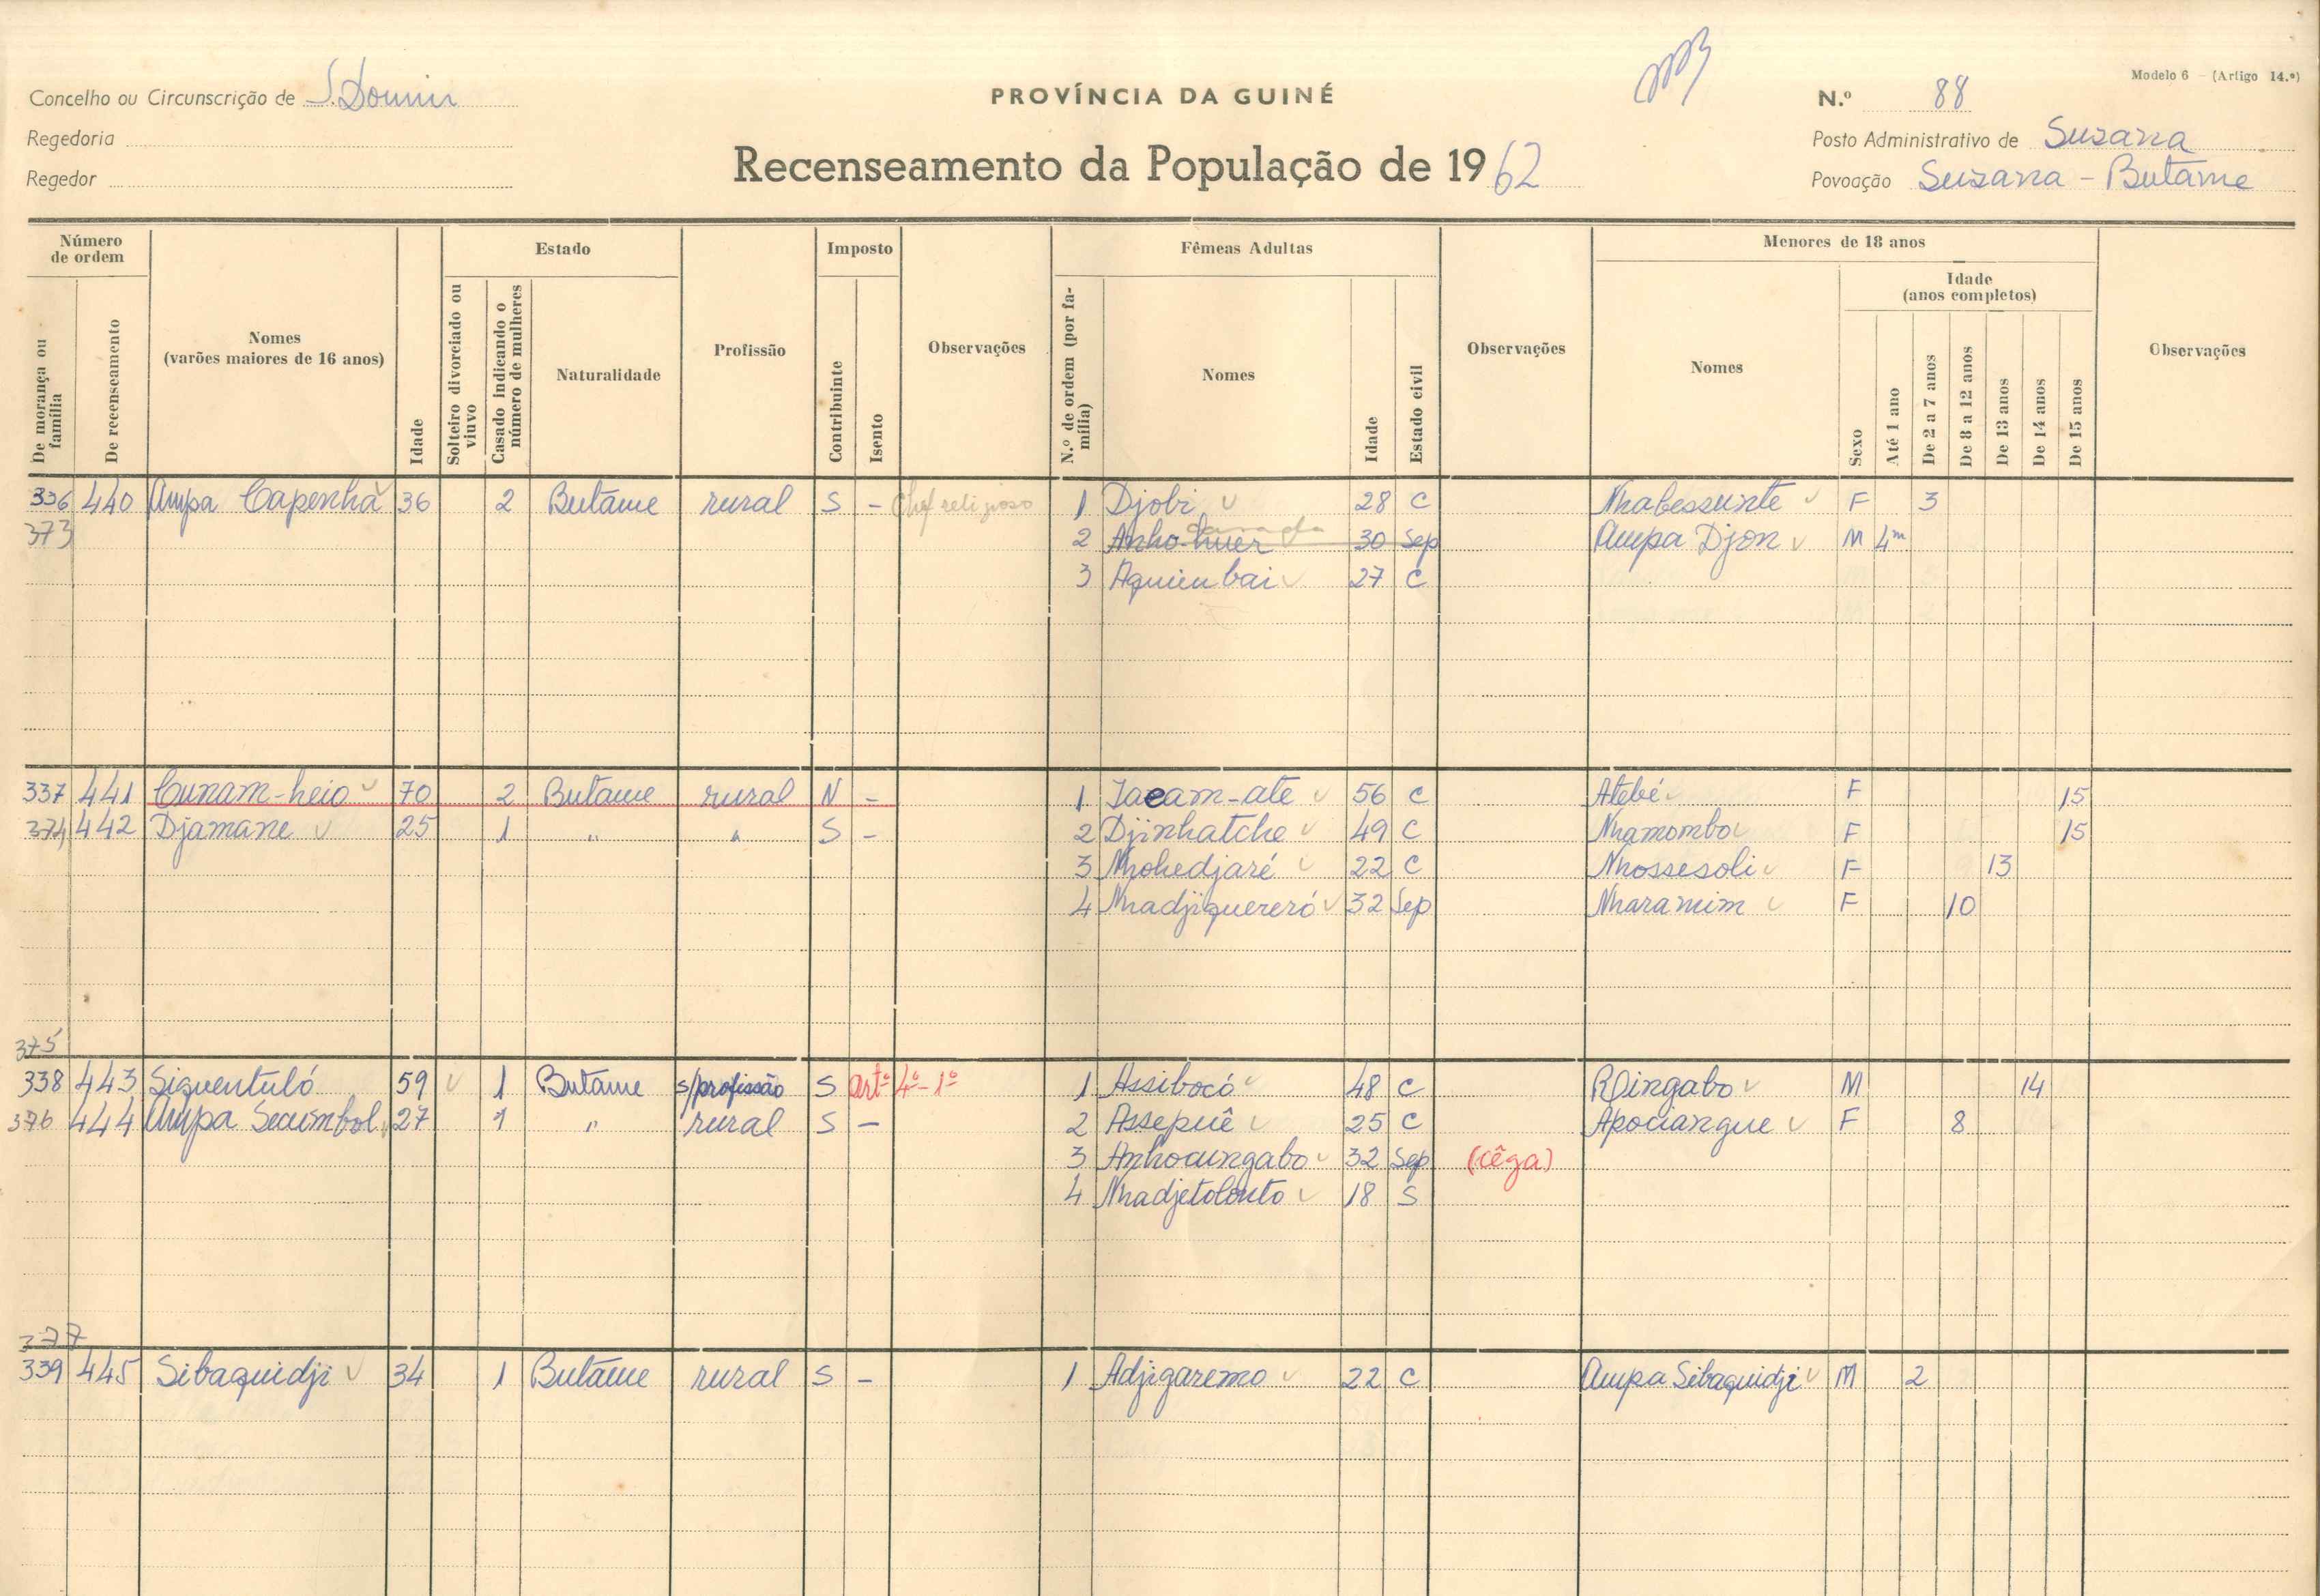 Modelo 6 — (Artigo 14.º)
Concelho ou Circunscrição de S. Domin
PROVÍNCIA DA GUINÉ
N.º 88
Regedoria
Posto Administrativo de Suzana
Regedor
Recenseamento da População de 1962
Povoação Suzana - Butame
Número de ordem
Estado
Imposto
Fêmeas Adultas
Menores de 18 anos
Idade
(anos completos)
De morança ou família
De recenseamento
Nomes
(varões maiores de 16 anos)
Idade
Solteiro divorciado ou viuvo
Casado indicando o número de mulheres
Naturalidade
Profissão
Contribuinte
Isento
Observações
N.º de ordem (por família)
Nomes
Idade
Estado civil
Observações
Nomes
Sexo
Até 1 ano
De 2 a 7 anos
De 8 a 12 anos
De 13 anos
De 14 anos
De 15 anos
Observações
336 440 Ampa Capenha 36 2 Butame rural S - Chef religioso 1 Djobi 28 C Nhabessunte F 3
373 2 Anho-huer 30 Sep Ampa Djon M 4m
3 Aquienbai 27 C
337 441 Cunam-heio 70 2 Butame rural N - 1 Jacam-ate 56 C Atebé F 15
374 442 Djamane 25 1 " " S - 2 Djinhatche 49 C Nhamombo F 15
3 Nhohedjaré 22 C Nhossesoli F 13
4 Nhadjiquereró 32 Sep Nharamim F 10
375
338 443 Siquentuló 59 1 Butame s/profissão S artº 4º-1º 1 Assibocó 48 C Rqingabo M 14
376 444 Ampa Secumbol 27 1 " rural S - 2 Assepuê 25 C Apociangue F 8
3 Anhocungabo 32 Sep (cêga)
4 Nhadjetolonto 18 S
377
339 445 Sibaquidji 34 1 Butame rural S - 1 Adjigaremo 22 C Ampa Sibaquidji M 2